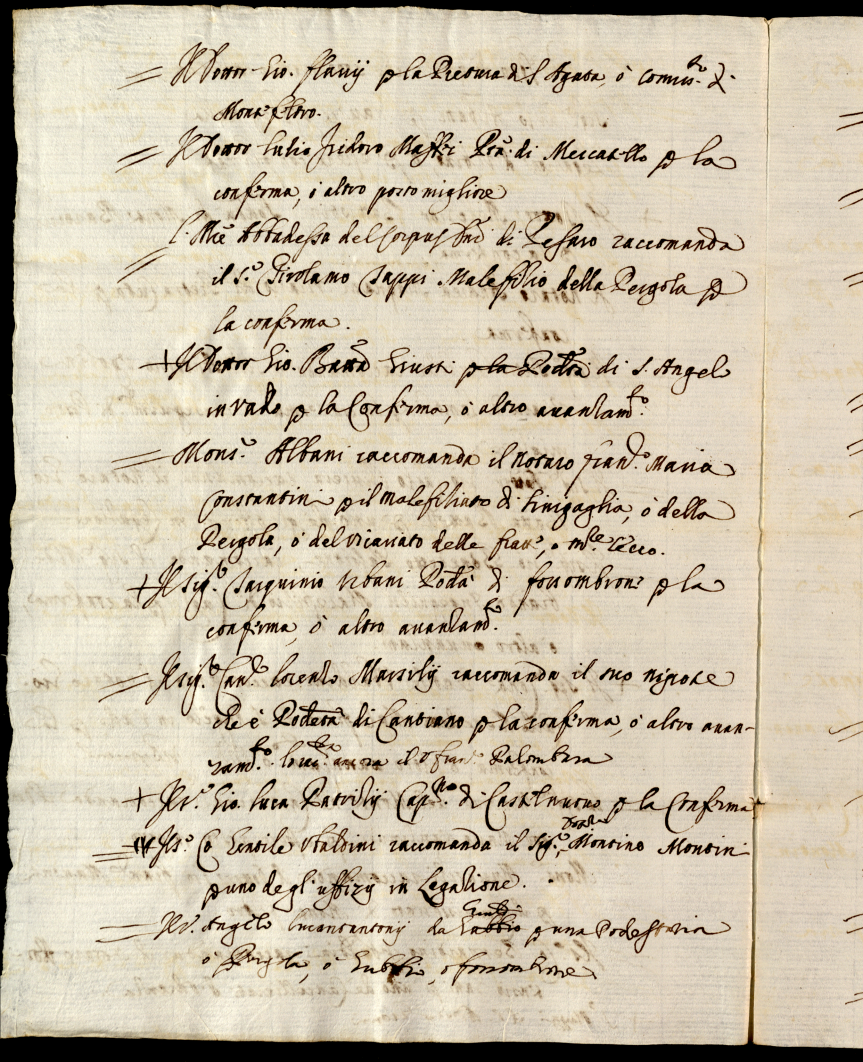 = Il Dottor Gio. Flavij p la Pretura di S. Agata, ò comiss.to di
Montefeltro.
= Il Dottor Giulio Isidoro Maffei Pod.à di Mercatello p la
conferma, ò altro posto migliore
= L'Abbadessa del Corpus Dni di Pesaro raccomanda
il S.r Girolamo Malefitio della Pergola p
la conferma.
+ Il Dottor Gio. Batta Giusti p la Podrà di S. Angelo
in Vado p la Conferma, ò altro auanzam.to
= Mons.r Albani raccomanda il Notaro Fran.co Maria
Constantini p il malefitiato di Sinigaglia, ò della
Pergola, ò del vicariato delle
+ Il Sig.r Tarquinio Urbani Podà di fossombrone p la
conferma, ò altro auanzam.to
= Il Sig.r Can.co Lorenzo Marsilij raccomanda il suo nipote
che è Podestà di Cantiano p la conferma, ò altro auan-
zam.to ancora il Palombara
+ Il S.r Gio. Luca Cap.no di Castelnuouo p la Conferma
= Il S.r Co. Gentile Ubaldini raccomanda il Sig.r Dottor Montino Montini
p uno degl'uffizij in Legatione.
= Il S.r Angelo Lucantonij da Gubbio p una Podestaria
ò Pergola, ò Gubbio, o fossombrone